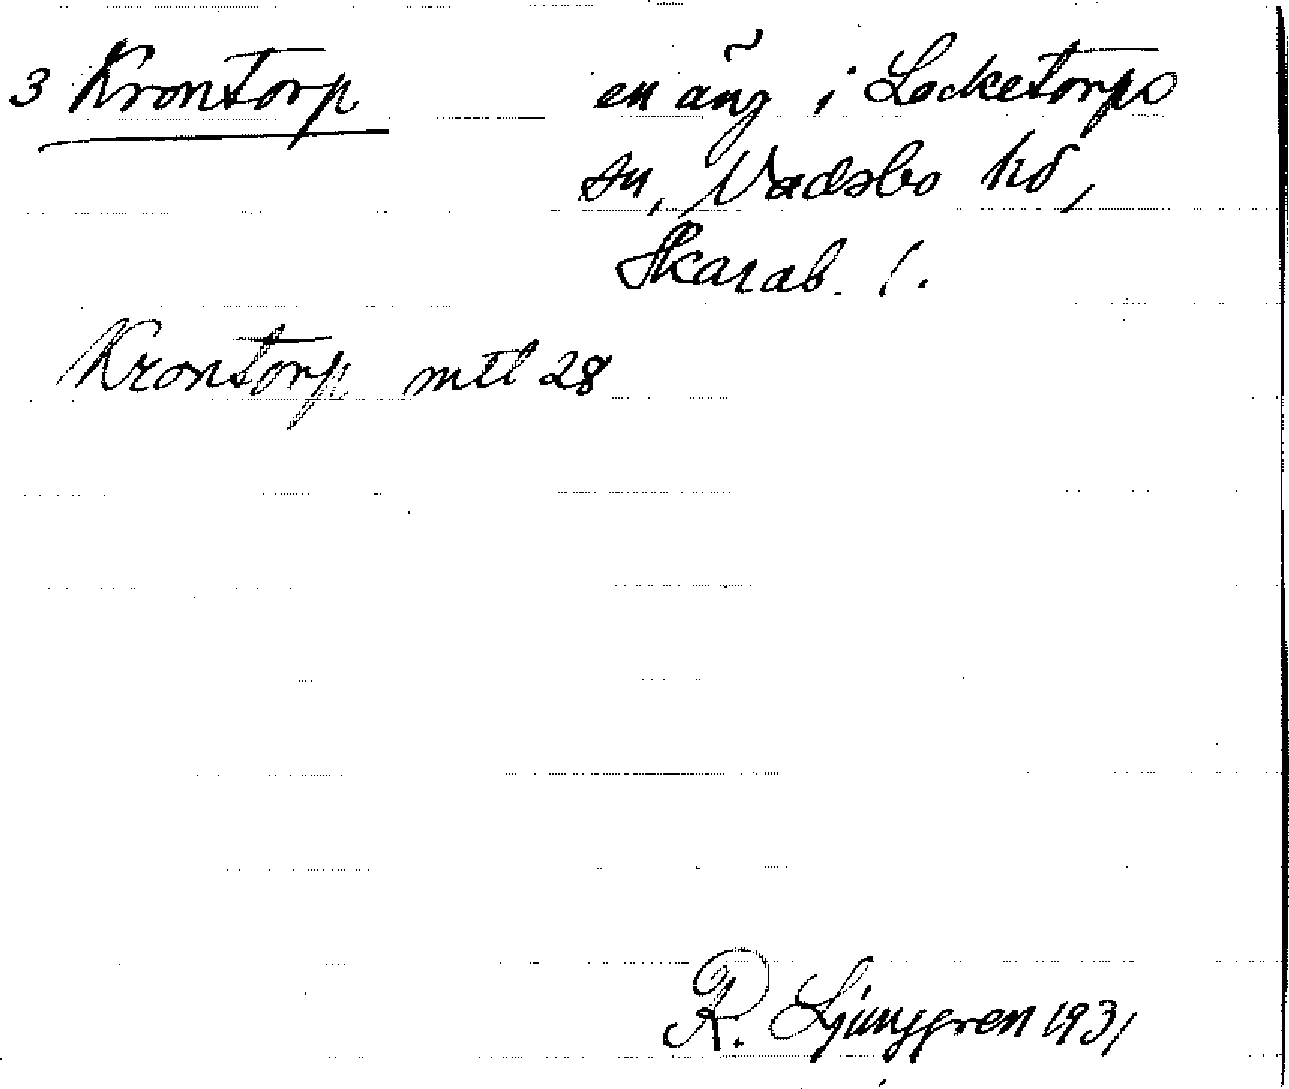 3 Krontorp en äng i Locketorps
sn, Vadsbo hd,
Skarab. l.
Krontorp mtl 28
R. Ljunggren 1931